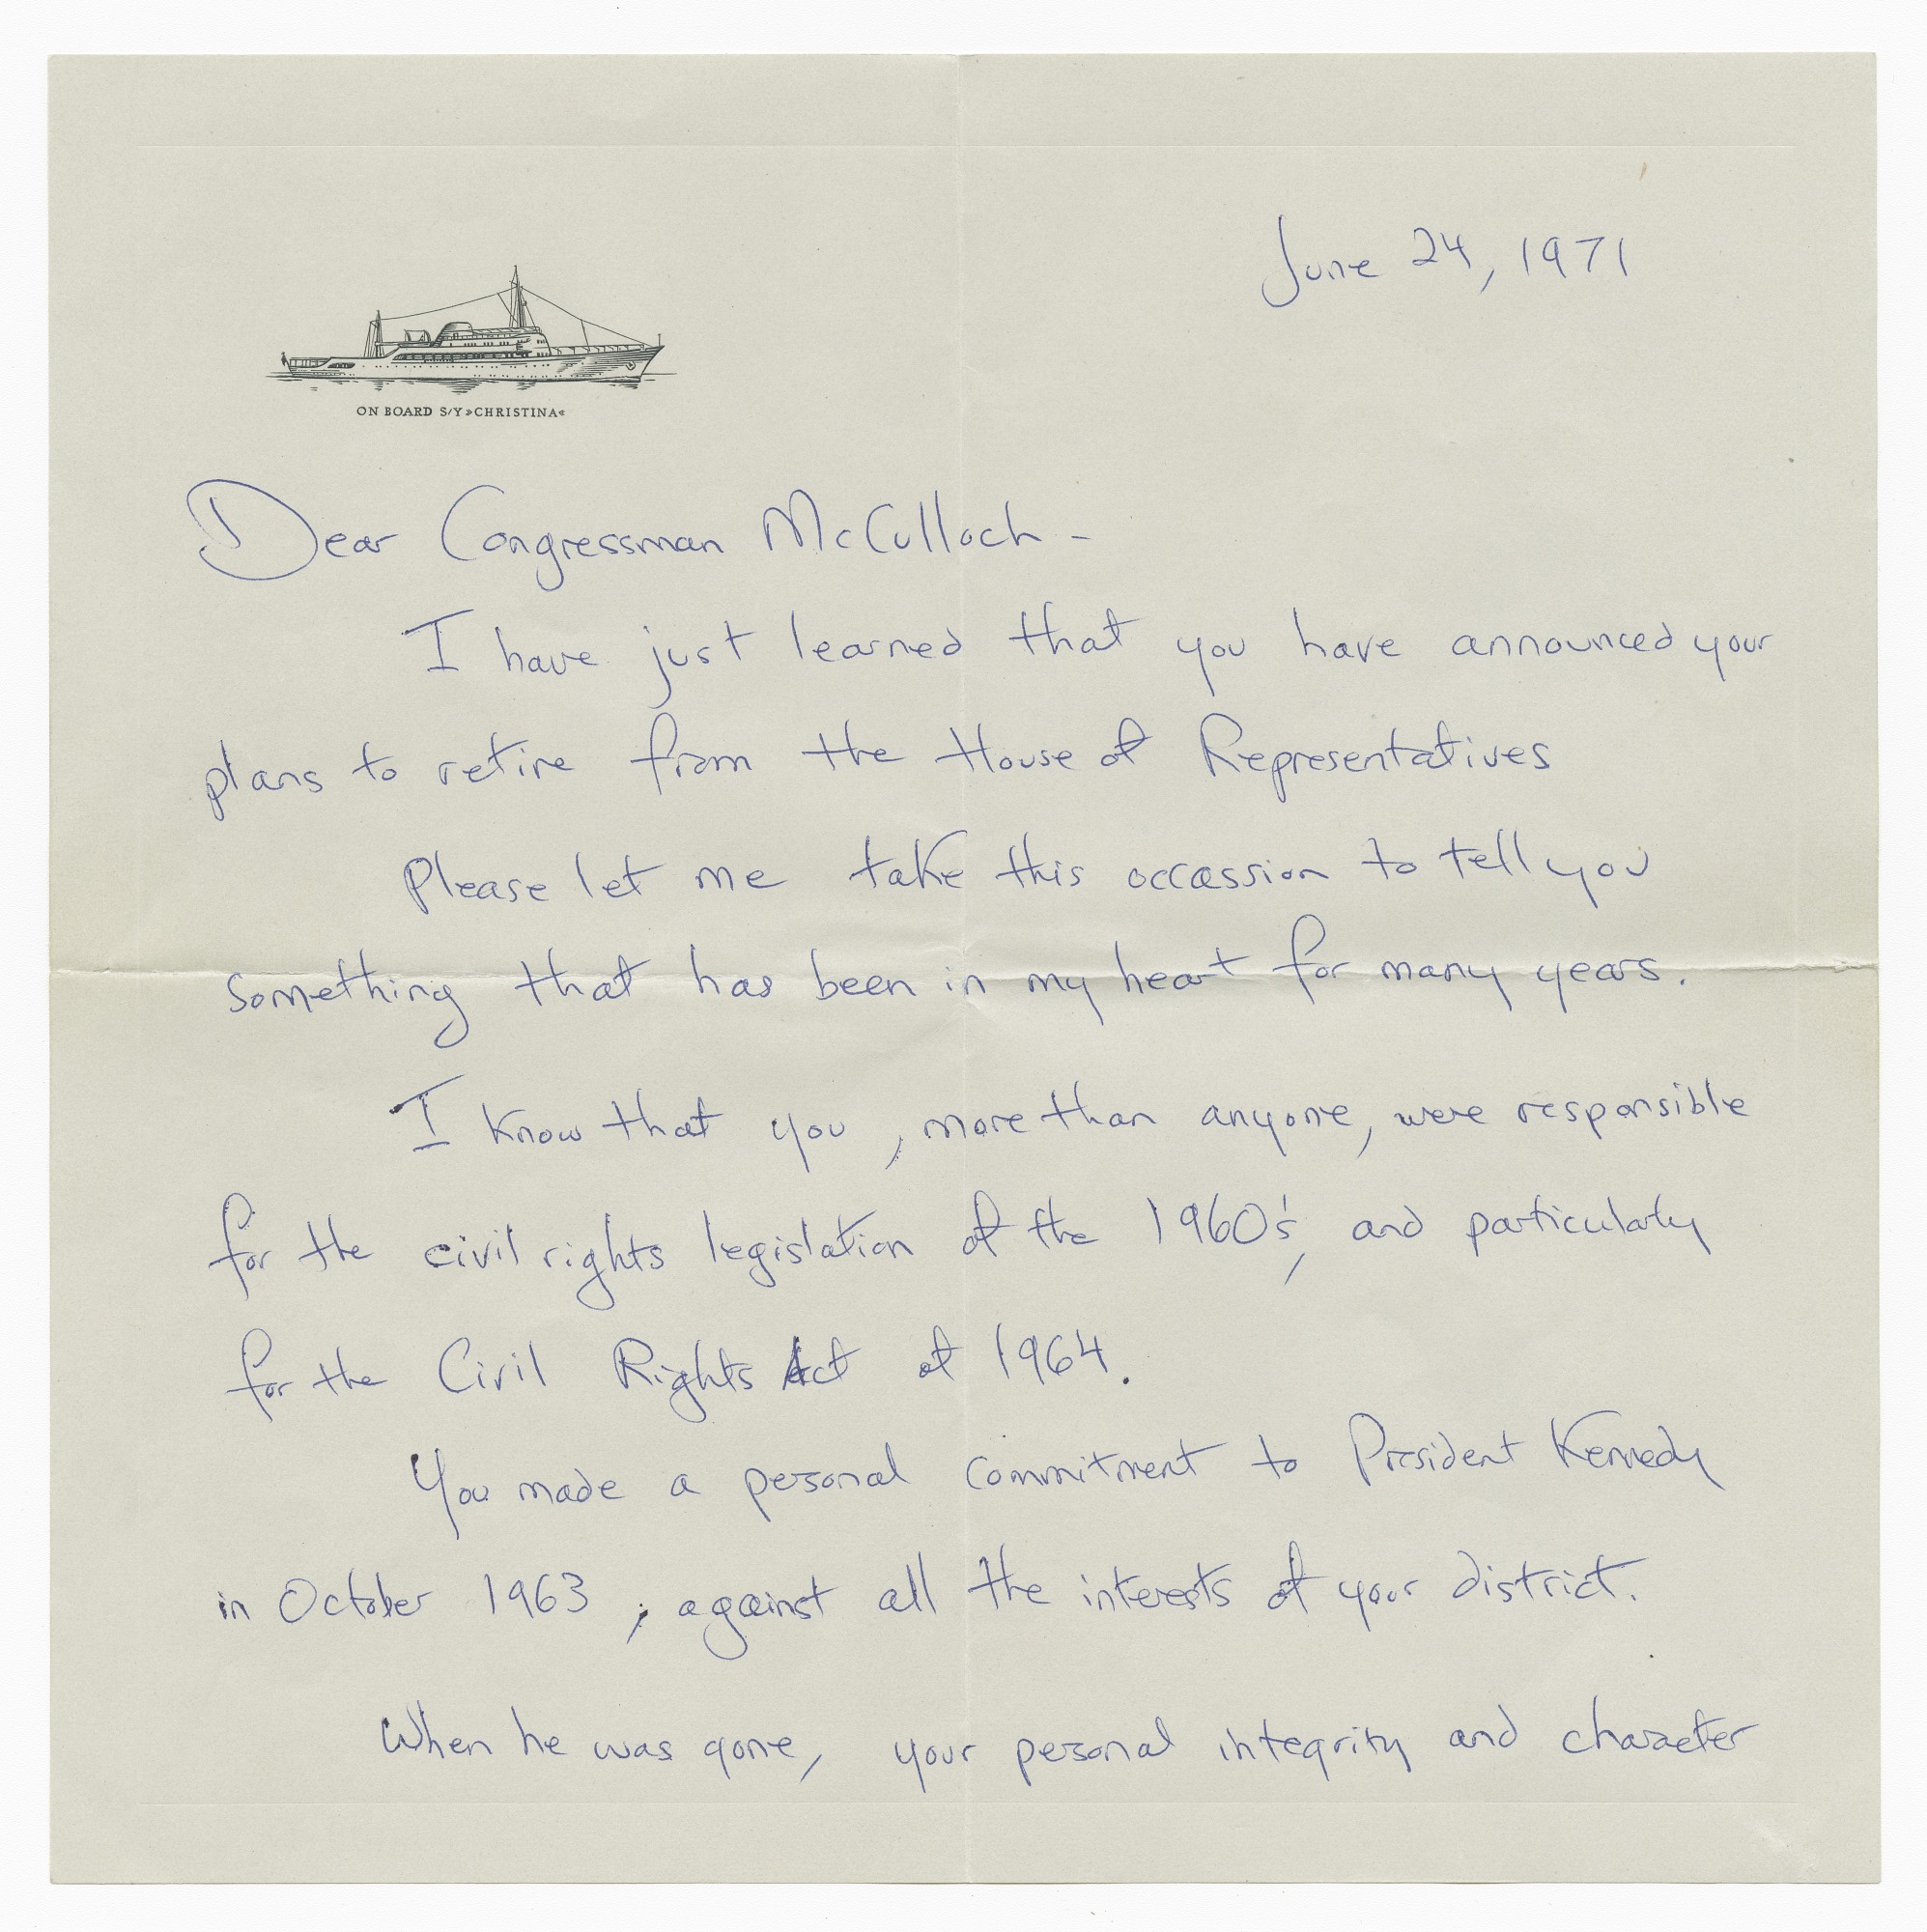 June 24, 1971
ON BOARD S/Y »CHRISTINA«
Dear Congressman McCulloch -
I have just learned that you have announced your
plans to retire from the House of Representatives
Please let me take this occassion to tell you
something that has been in my heart for many years.
I know that you, more than anyone, were responsible
for the civil rights legislation of the 1960's, and particularly
for the Civil Rights Act of 1964.
You made a personal commitment to President Kennedy
in October 1963, against all the interests of your district.
When he was gone, your personal integrity and character